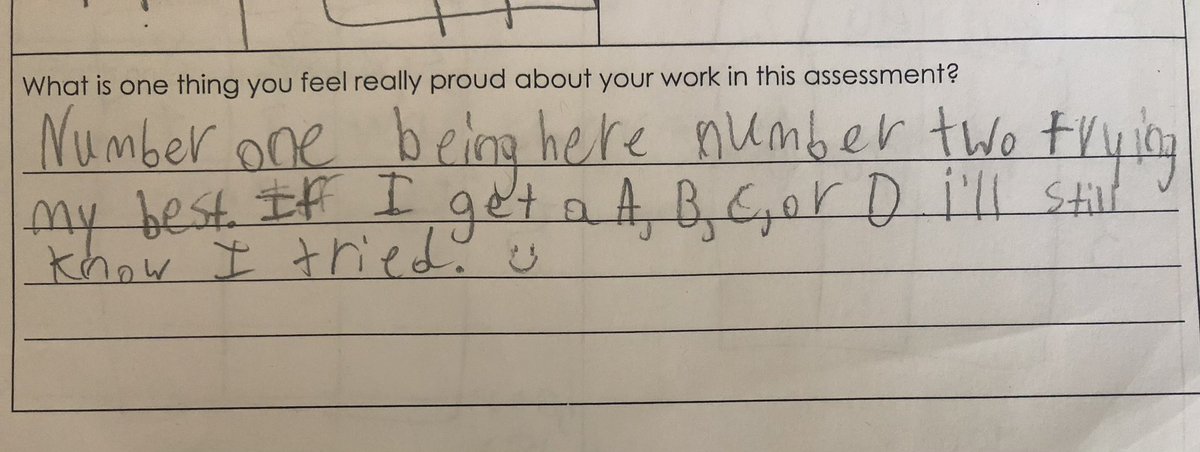 What is one thing you feel really proud about your work in this assessment?
Number one being here number two trying
my best. If I get a A, B, C, or D i'll still
know I tried.